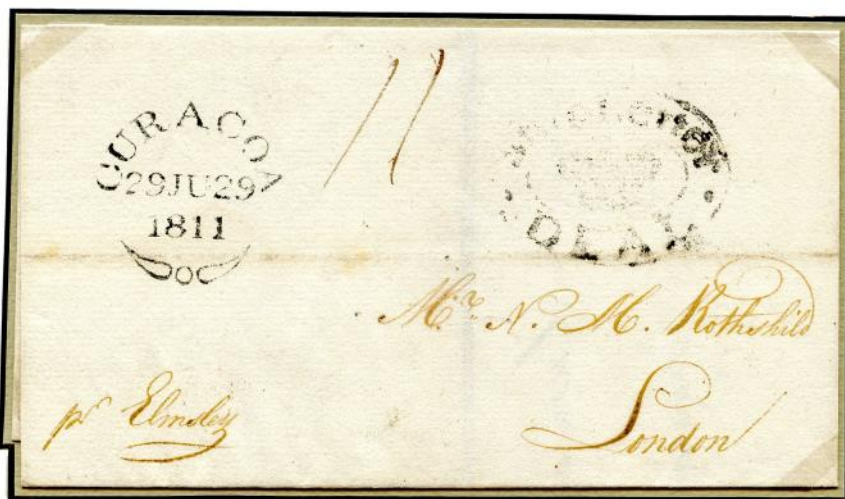 CURACOA
29JU29
1811
11
DEAL
Mr. N. M. Rothschild
London
pr Elmsley